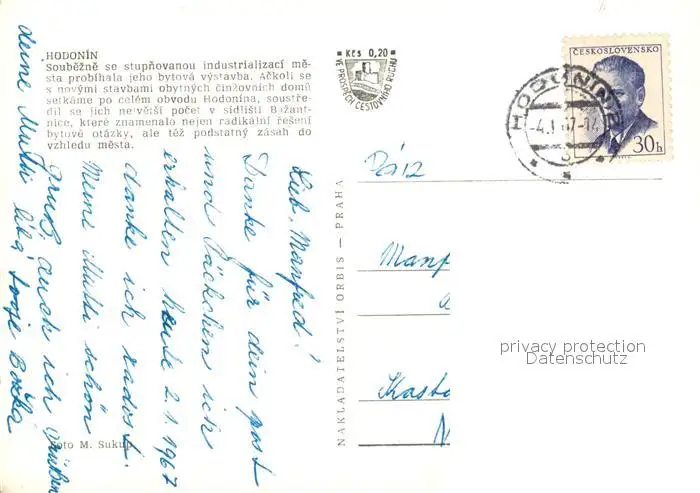 HODONÍN
Souběžně se stupňovanou industrializací mě-
sta probíhala jeho bytová výstavba. Ačkoli se
s novými stavbami obytných činžovních domů
setkáme po celém obvodu Hodonína, soustře-
dil se jejich největší počet v sídlišti Bažant-
nice, které znamenalo nejen radikální řešení
bytové otázky, ale též podstatný zásah do
vzhledu města.
Kčs 0,20
VE PROSPĚCH CESTOVNÍHO RUCHU
ČESKOSLOVENSKO
30h
HODONÍN
NAKLADATELSTVÍ ORBIS — PRAHA
Lieb. Manfred!
Danke für dein post
und Päckchen ich
erhalten heute 2.1.1967
danke ich
Meine Mutti schön
gruß, auch ich Grüßen
deine Mutti
Manf
Kast
N
Foto M. Sukup
privacy protection
Datenschutz